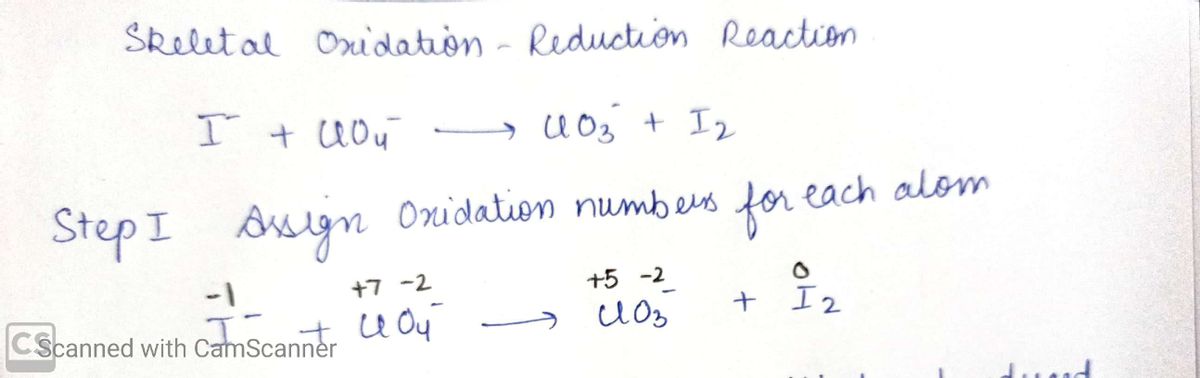 Skeletal Oxidation - Reduction Reaction
I⁻ + ClO₄⁻ ⟶ ClO₃⁻ + I₂
Step I Assign Oxidation numbers for each atom
-1 +7 -2 +5 -2 0
I⁻ + ClO₄⁻ ⟶ ClO₃⁻ + I₂
CS Scanned with CamScanner